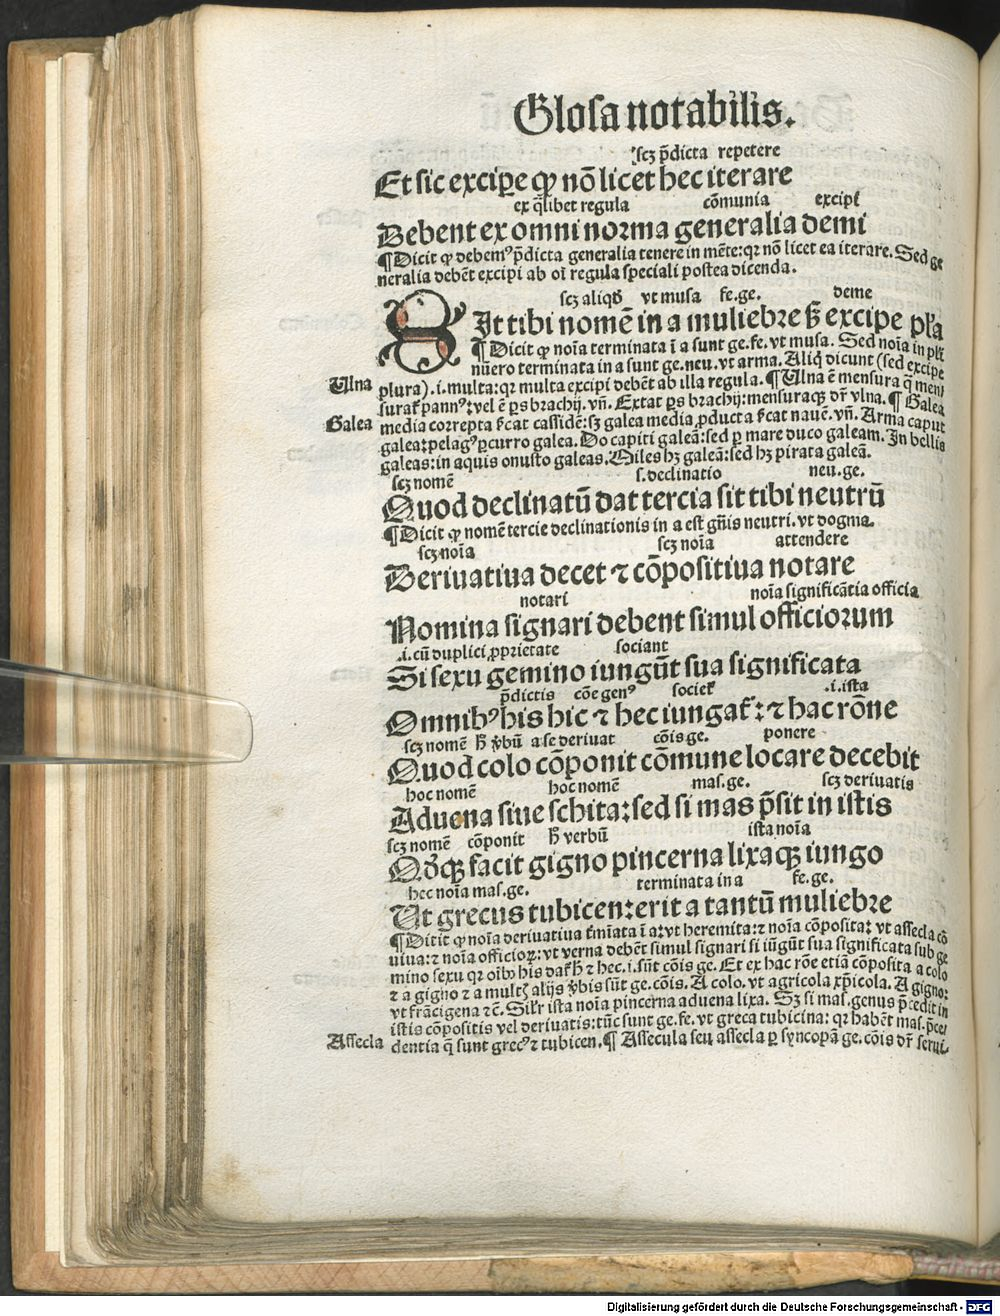 Glosa notabilis.
scꝫ p̄dicta repetere
Et sic excipe ꝙ nō licet hec iterare
ex q̄libet regula cōmunia excipi
Debent ex omni norma generalia demi
¶Dicit ꝙ debemꝰ p̄dicta generalia tenere in mēte: qꝛ nō licet ea iterare. Sed ge
neralia debēt excipi ab oī regula speciali postea dicenda.
scꝫ aliqđ vt musa fe.ge. deme
SIt tibi nomē in a muliebre ß excipe pl'a
¶Dicit ꝙ noīa terminata ī a sunt ge.fe. vt musa. Sed noīa in pl'r
nūero terminata in a sunt ge.neu. vt arma. Aliq̄ dicunt (sed excipe
Ulna plura).i.multa: qꝛ multa excipi debēt ab illa regula. ¶Ulna ē mensura q̄ men
surat̄ pannꝰ: vel ē ꝑs brachij. vn̄. Extat ꝑs brachij: mensuraqꝫ dr̄ vlna. ¶Galea
Galea media correpta s̄cat cassidē: sꝫ galea media ꝓducta s̄cat nauē. vn̄. Arma caput
galea: pelagꝰ ꝑcurro galea. Do capiti galeā: sed ꝑ mare duco galeam. In bellis
galeas: in aquis onusto galeas. Miles hꝫ galeā: sed hꝫ pirata galeā.
scꝫ nomē s.declinatio neu.ge.
Quod declinatū dat tercia sit tibi neutrū
¶Dicit ꝙ nomē tercie declinationis in a est gn̄is neutri. vt dogma.
scꝫ noīa scꝫ noīa attendere
Deriuatiua decet ⁊ cōpositiua notare
notari noīa significātia officia
Nomina signari debent simul officiorum
.i. cū duplici ꝓprietate sociant
Si sexu gemino iungūt sua significata
p̄dictis cōe genꝰ societ̄ .i. ista
Omnibꝰ his hic ⁊ hec iungat̄: ⁊ hac rōne
scꝫ nomē ɧ v̄bū a se deriuat cōis ge. ponere
Quod colo cōponit cōmune locare decebit
hoc nomē hoc nomē mas.ge. scꝫ deriuatis
Aduena siue schita: sed si mas p̄sit in istis
scꝫ nomē cōponit ɧ verbū ista noīa
Qđqꝫ facit gigno pincerna lixaqꝫ iungo
hec noīa mas.ge. terminata in a fe.ge.
Ut grecus tubicen: erit a tantū muliebre
¶Dicit ꝙ noīa deriuatiua t̄mīata ī a: vt heremita: ⁊ noīa cōposita: vt assecla cō
uiua: ⁊ noīa officioꝝ: vt verna debēt simul signari si iūgūt sua significata sub ge
mino sexu qꝛ oībꝰ his dat̄ ɧ ⁊ hec. i. sūt cōis ge. Et ex hac rōe etiā cōposita a colo
⁊ a gigno ⁊ a multꝭ alijs v̄bis sūt ge.cōis. A colo. vt agricola xp̄icola. A gigno:
vt frācigena ⁊ c̄. Sil'r ista noīa pincerna aduena lixa. Sꝫ si mas.genus p̄cedit in
istis cōpositis vel deriuatis: tūc sunt ge.fe. vt greca tubicina: qꝛ habēt mas.p̄ce
Assecla dentia q̄ sunt grecꝰ ⁊ tubicen. ¶ Assecula seu assecla ꝑ syncopā ge. cōis dr̄ serui-
Digitalisierung gefördert durch die Deutsche Forschungsgemeinschaft - DFG